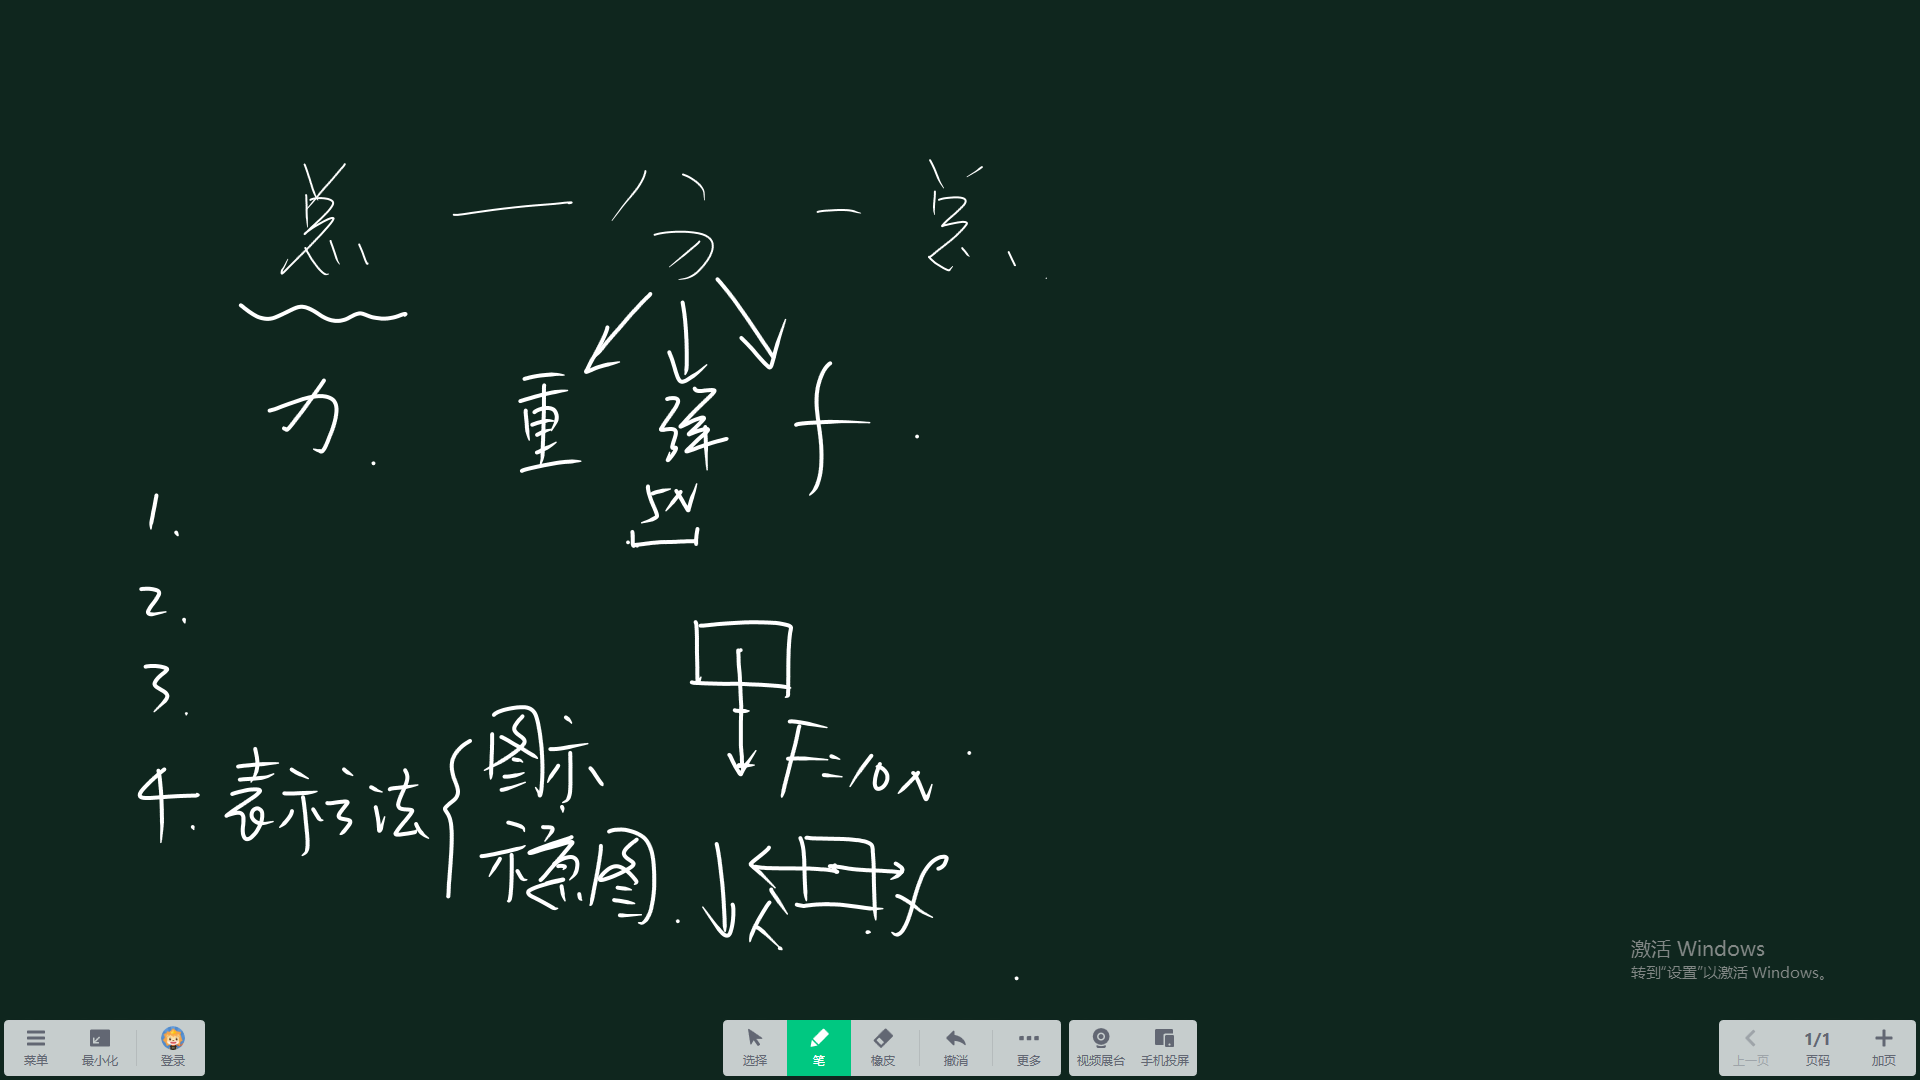 总 — 分 - 总
力. 重 弹 f
5N
1.
2.
3.
F=10N
4. 表示法 { 图示
示意图.
f
激活 Windows
转到“设置”以激活 Windows。
菜单 最小化 登录 选择 笔 橡皮 撤消 更多 视频展台 手机投屏 上一页 1/1 页码 加页